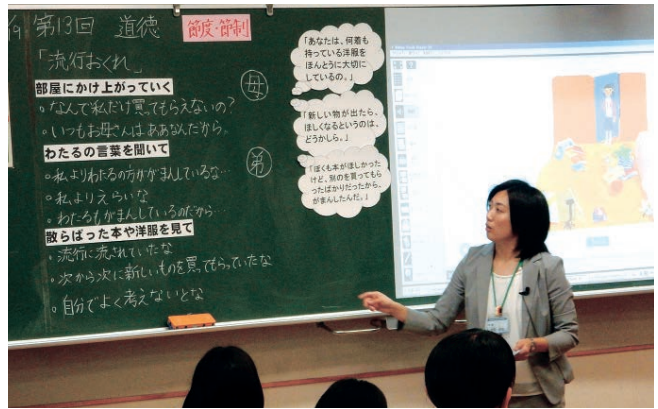 第13回 道徳 節度・節制
「流行おくれ」
部屋にかけ上がっていく
。なんで私だけ買ってもらえないの?
。いつもお母さんはああなんだから。
わたるの言葉を聞いて
。私よりわたるの方ががまんしているな…
。私よりえらいな
。わたるもがまんしているのだから…
散らばった本や洋服を見て
・流行に流されていたな
。次から次に新しいものを買ってもらっていたな
。自分でよく考えないとな
母
弟
「あなたは、何着も
持っている洋服を
ほんとうに大切に
しているの。」
「新しい物が出たら、
ほしくなるというのは、
どうかしら。」
「ぼくも本がほしかった
けど、別のを買ってもら
ったばかりだったから、
がまんしたんだ。」